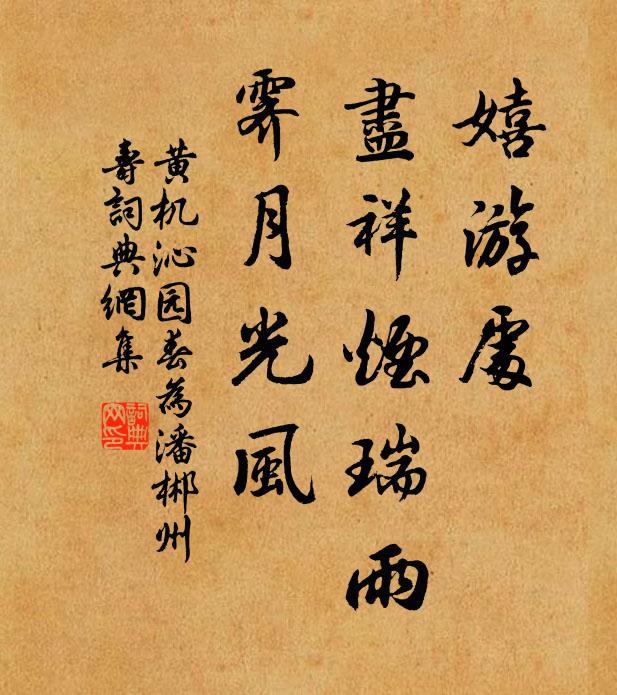 嬉游處
盡祥煙瑞雨
霽月光風
黄机沁园春為潘郴州
壽詞典網集
詞典网印